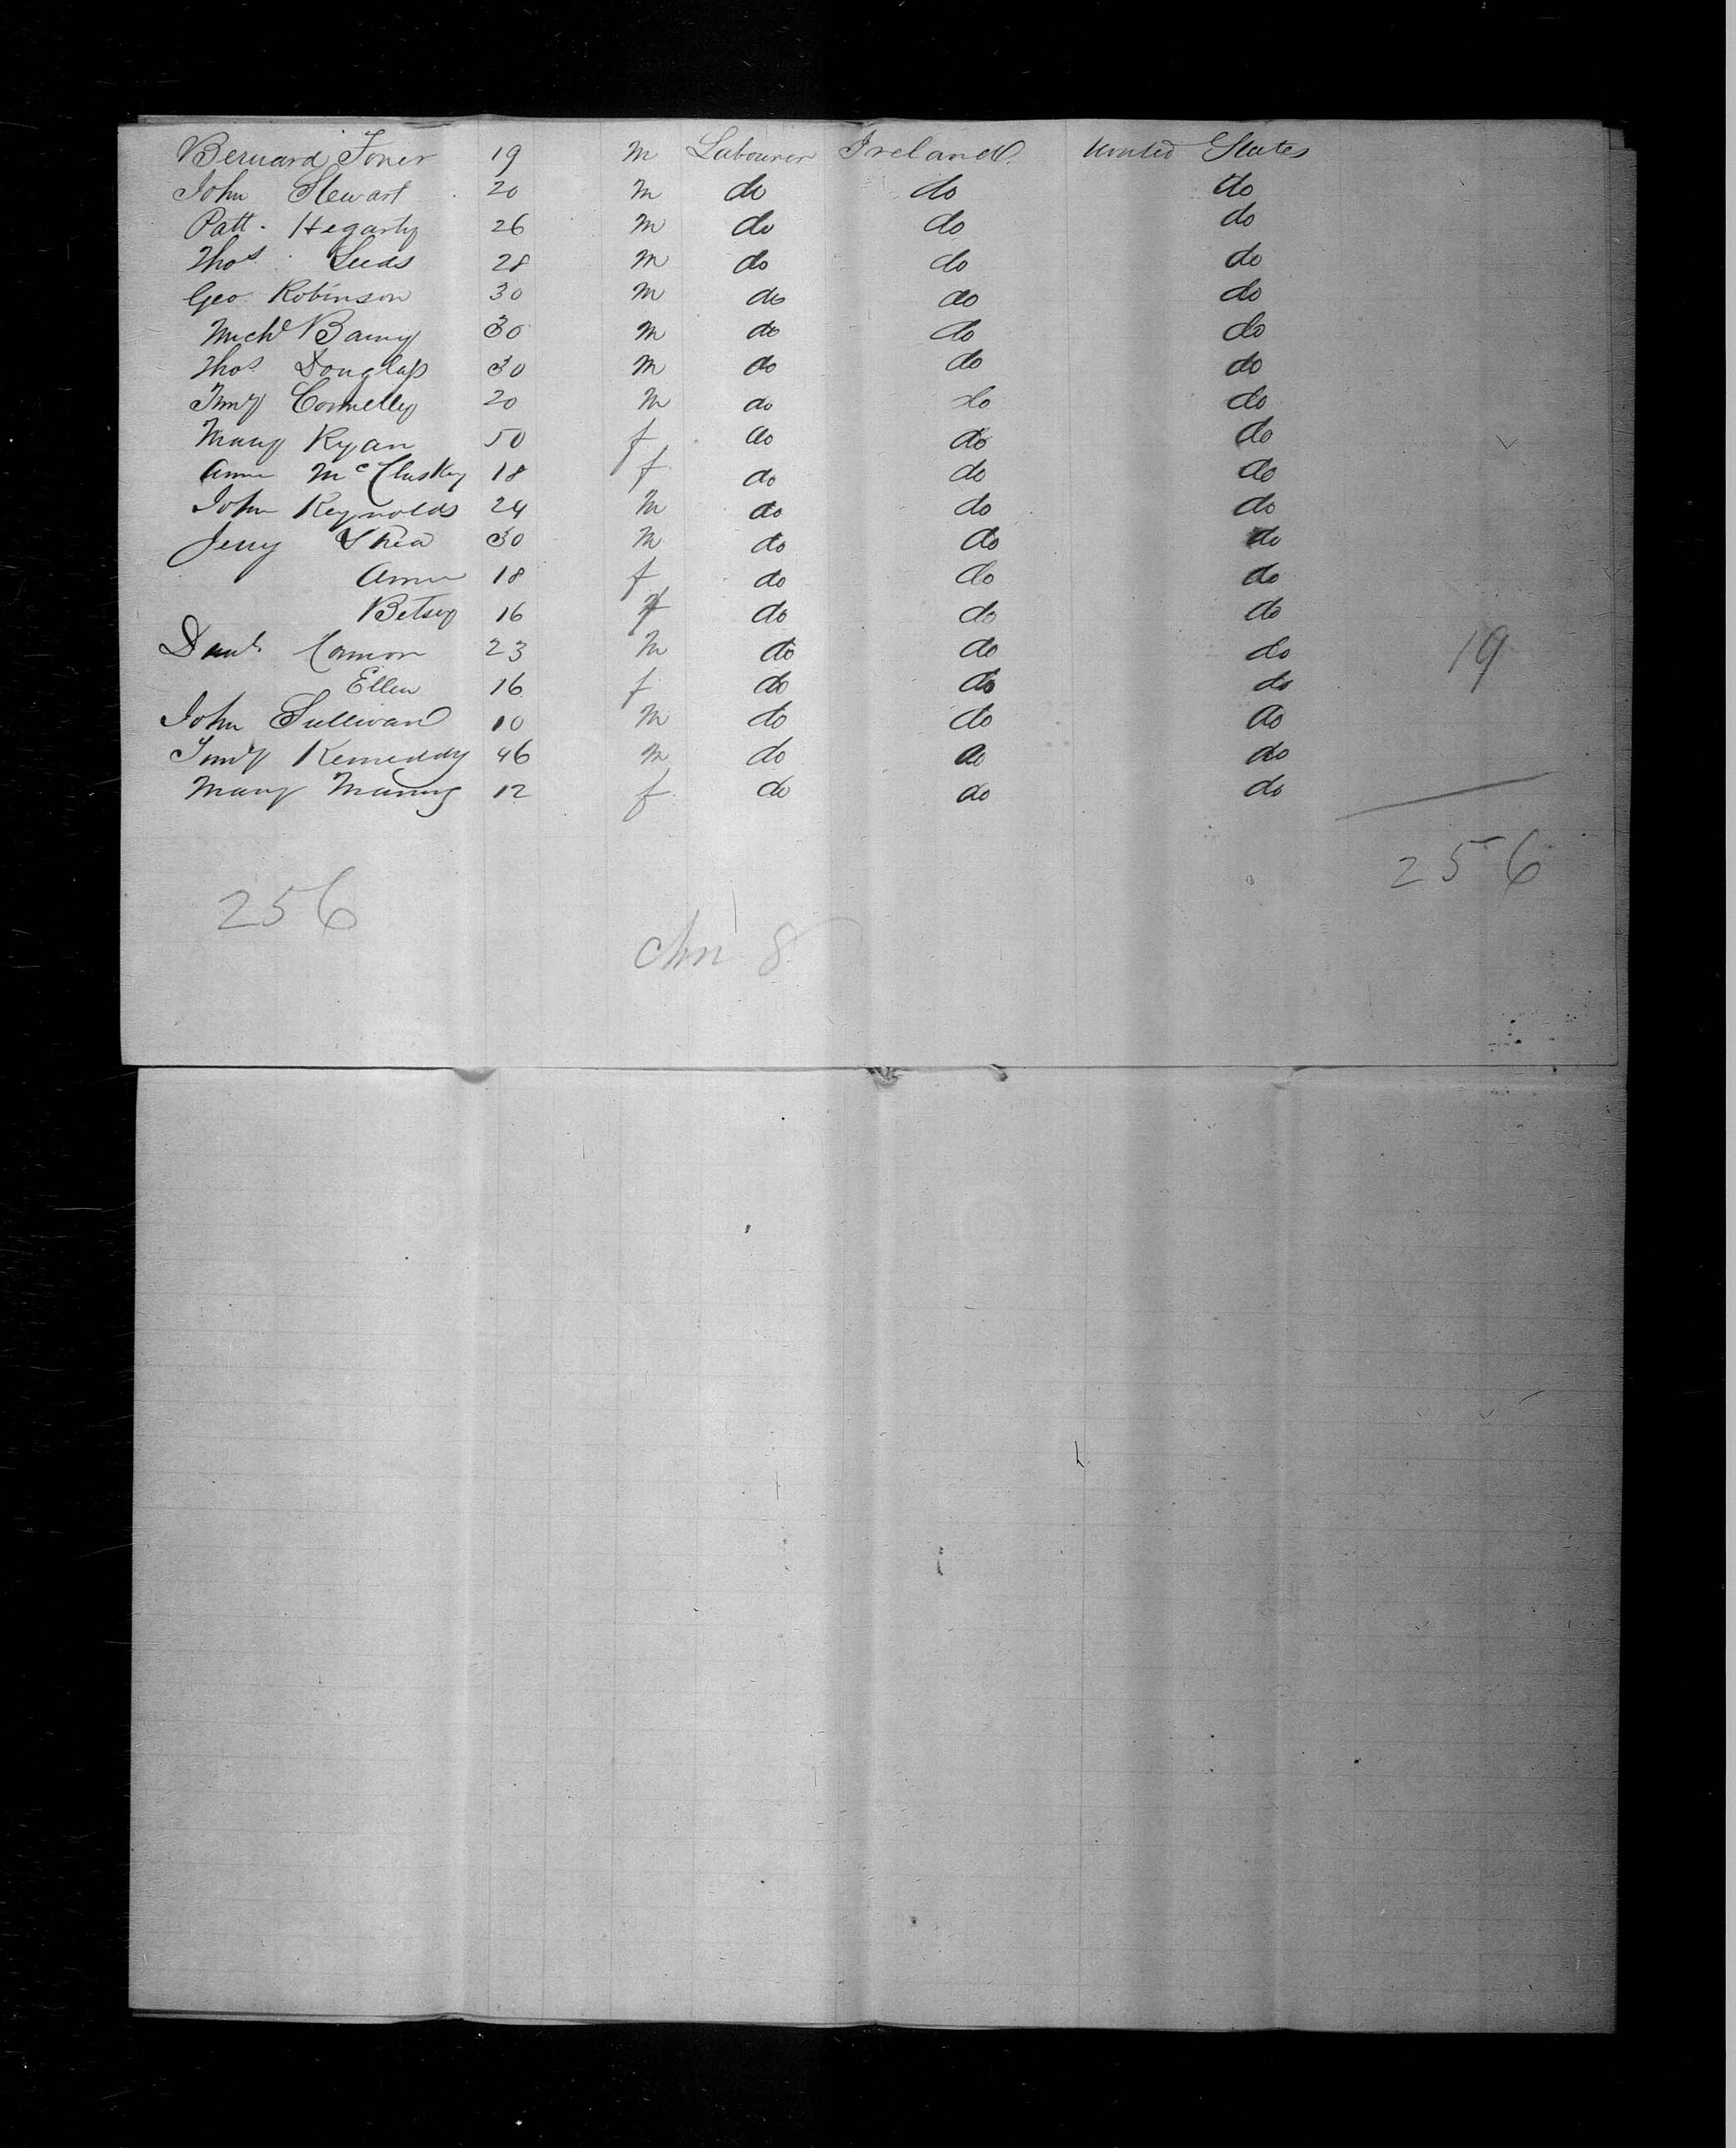 Bernard Toner 19 m Labourer Ireland United States
John Stewart 20 m do do do
Patt. Hegarty 26 m do do do
Thos Leeds 28 m do do do
Geo Robinson 30 m do do do
Michl Barry 30 m do do do
Thos Douglass 30 m do do do
Timy Connelly 20 m do do do
Mary Ryan 50 f do do do
Ann McCluskey 18 f do do do
John Reynolds 24 m do do do
Jerry Shea 30 m do do do
Ann 18 f do do do
Betsey 16 f do do do
Danl. 23 m do do do
19
Ellen 16 f do do do
John Sullivan 10 m do do do
Timy Kenneddy 46 m do do do
Mary 12 f do do do
256
256
chn 8